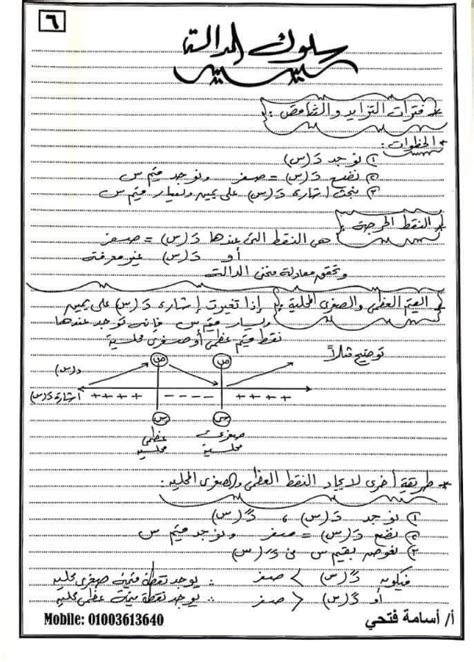 ٦
سلوك الدالة
* فترات التزايد والتناقص :
* الخطوات :
① نوجد دَ(س)
② نضع دَ(س) = صفر ونوجد قيم س
③ نبحث إشارة دَ(س) على يمين ويسار قيم س
* النقط الحرجة
هى النقط التى عندها دَ(س) = صفر
أو دَ(س) غير معرفة
وتحقق معادلة منحنى الدالة
* القيم العظمى والصغرى المحلية : إذا تغيرت إشارة دَ(س) على يمين
ويسار قيم س فإنه توجد عندها
نقط قيم عظمى أو صغرى محلية
توضيح فمثلاً
ص ص
د(س)
إشارة دَ(س) ++++ ---- ++++
س س
عظمى محلية صغرى محلية
* طريقة أخرى لإيجاد النقط العظمى والصغرى المحلية :
① نوجد دَ(س) ، دً(س)
② نضع دَ(س) = صفر ونوجد قيم س
③ نعوض بقيم س فى دً(س)
فيكون دً(س) > صفر ∴ يوجد نقطة قيمة صغرى محلية
أو دً(س) < صفر ∴ يوجد نقطة قيمة عظمى محلية
Mobile: 01003613640
أ/ أسامة فتحي